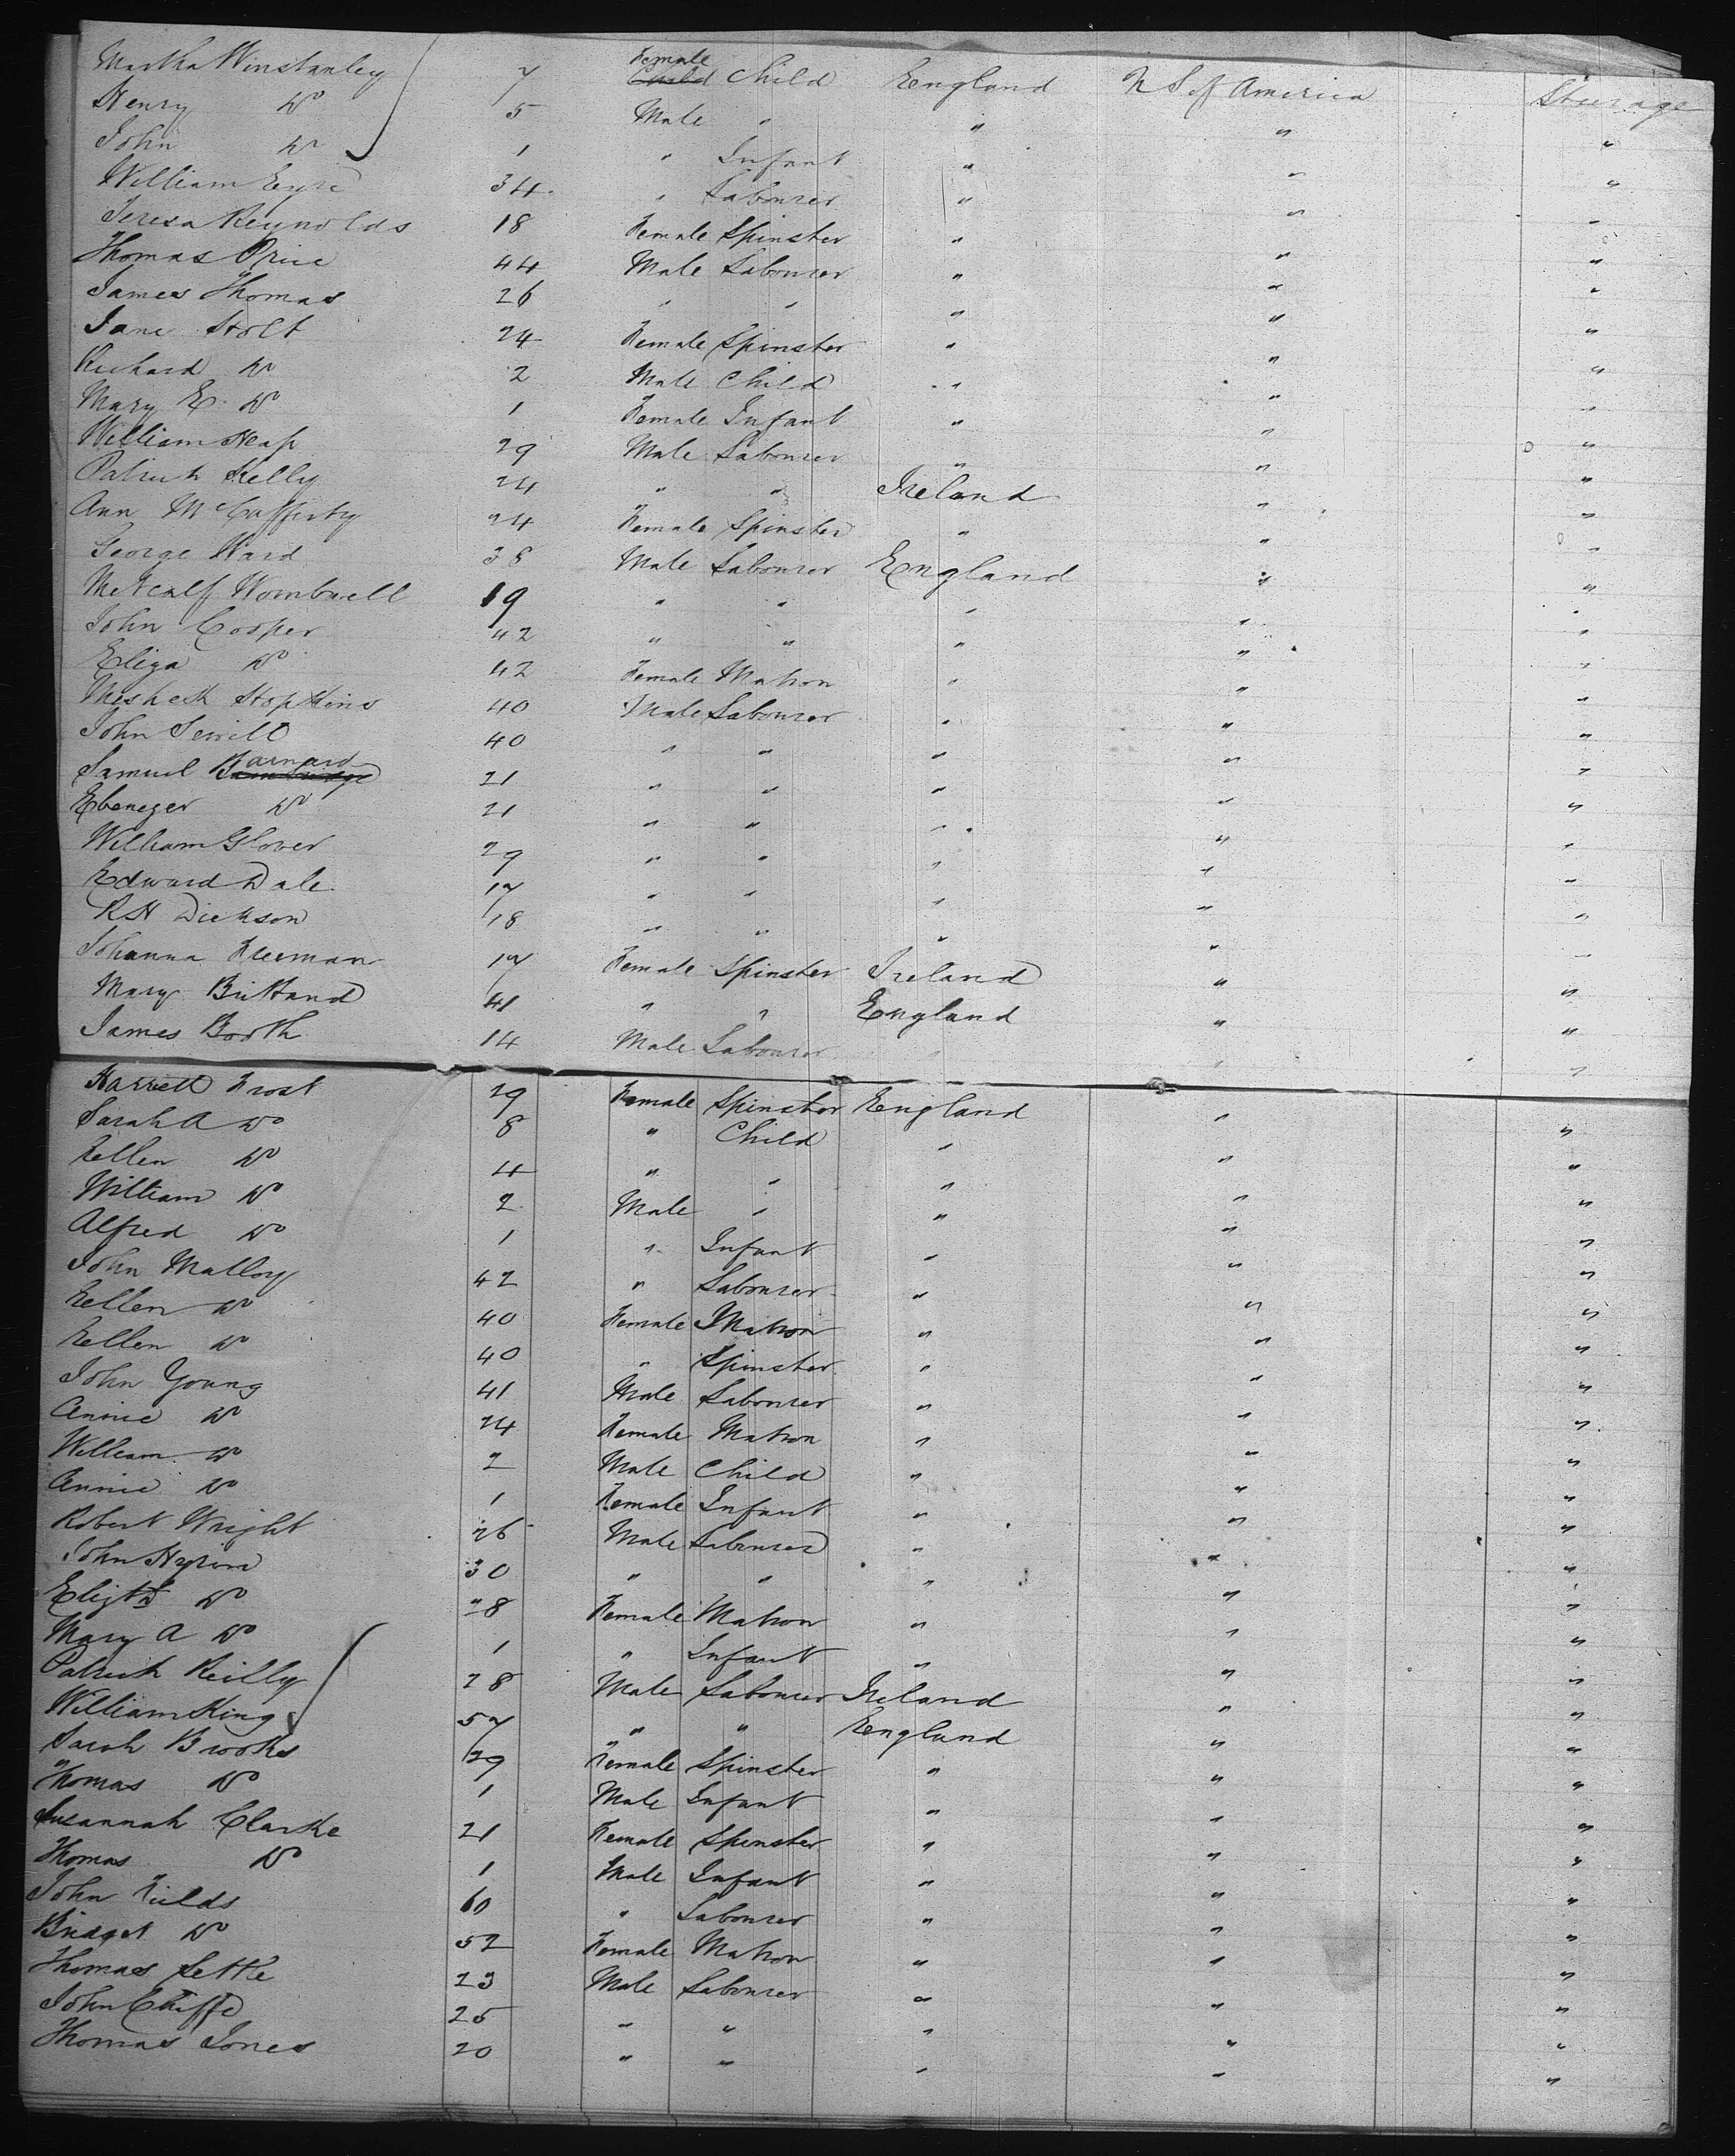 Martha Winstanley 7 Female Child Child England U S of America Steerage
Henry Do 5 Male " " " "
John Do 1 " Infant " " "
William Eyre 34 " Labourer " " "
Teresa Reynolds 18 Female Spinster " " "
Thomas Price 44 Male Labourer " " "
James Thomas 26 " " " " "
Jane Holt 24 Female Spinster " " "
Richard Do 2 Male Child " " "
Mary E. Do 1 Female Infant " " "
William Heap 29 Male Labourer " " "
Patrick Kelly 24 " " Ireland " "
Ann McCafferty 24 Female Spinster " " "
George Ward 38 Male Labourer England " "
Metcalf Wombwell 19 " " " " "
John Cooper 42 " " " " "
Eliza Do 42 Female Matron " " "
Meshech Hopkins 40 Male Labourer " " "
John Sewill 40 " " " " "
Samuel Barnard 21 " " " " "
Ebenezer Do 21 " " " " "
William Glover 29 " " " " "
Edward Dale 17 " " " " "
R H Dickson 18 " " " " "
Johanna 17 Female Spinster Ireland " "
Mary Brittand 41 " " England " "
James Booth 14 Male Labourer " " "
Harriett Frost 29 Female Spinster England " "
Sarah A Do 8 " Child " " "
Ellen Do 4 " " " " "
William Do 2 Male " " " "
Alfred Do 1 " Infant " " "
John Malloy 42 " Labourer " " "
Ellen Do 40 Female Matron " " "
Ellen Do 40 " Spinster " " "
John Young 41 Male Labourer " " "
Annie Do 24 Female Matron " " "
William Do 2 Male Child " " "
Annie Do 1 Female Infant " " "
Robert Wright 26 Male Labourer " " "
John 30 " " " " "
Elizth Do 28 Female Matron " " "
Mary A Do 1 " Infant " " "
Patrick Reilly 28 Male Labourer Ireland " "
William King 57 " " England " "
Sarah Brooks 29 Female Spinster " " "
Thomas Do 1 Male Infant " " "
Susannah Clarke 21 Female Spinster " " "
Thomas Do 1 Male Infant " " "
John Fields 60 " Labourer " " "
Bridget Do 52 Female Matron " " "
Thomas 23 Male Labourer " " "
John 25 " " " " "
Thomas Jones 20 " " " " "